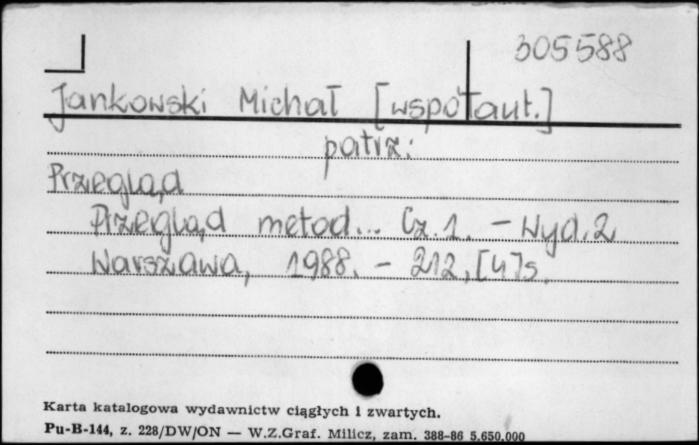 305588
Jankowski Michał [współaut.]
patrz:
Przegląd
Przegląd metod... Cz. 1. - Wyd. 2
Warszawa, 1988. - 212, [4] s.
Karta katalogowa wydawnictw ciągłych i zwartych.
Pu-B-144, z. 228/DW/ON — W.Z.Graf. Milicz, zam. 388-86 5.650.000